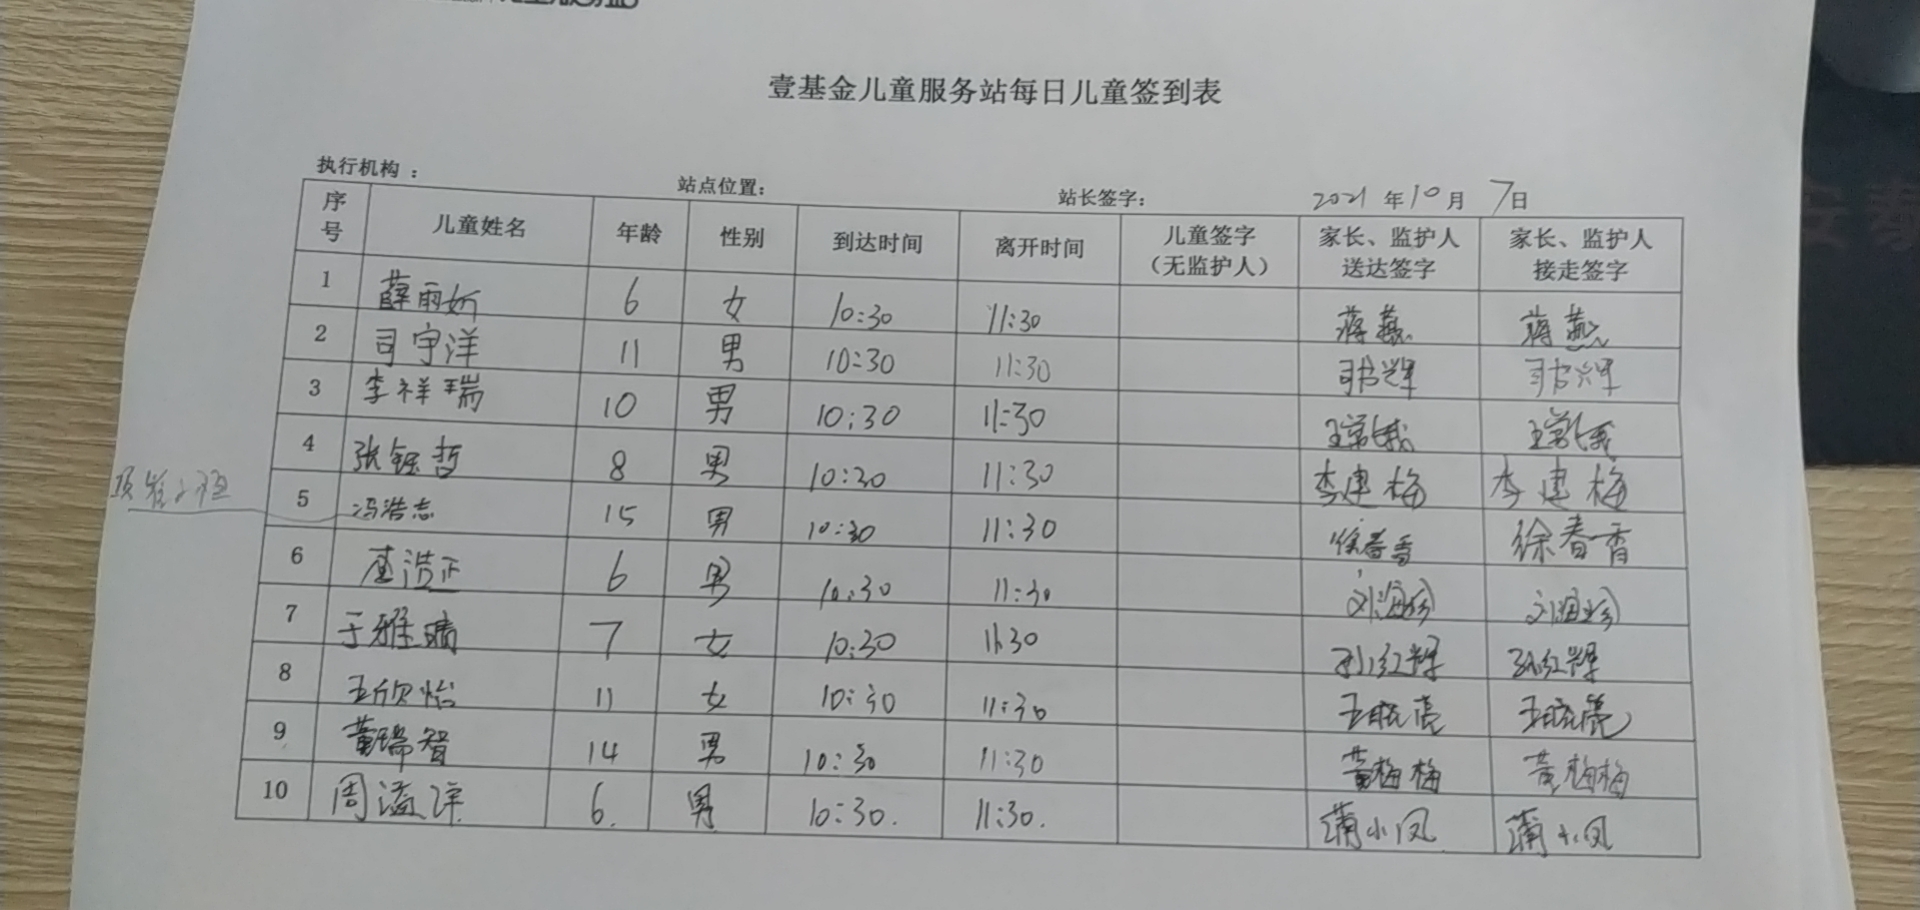 壹基金儿童服务站每日儿童签到表
执行机构： 站点位置： 站长签字： 2021 年 10 月 7 日
序号 儿童姓名 年龄 性别 到达时间 离开时间 儿童签字（无监护人） 家长、监护人送达签字 家长、监护人接走签字
1 薛雨妡 6 女 10:30 11:30 蒋燕 蒋燕
2 司宇洋 11 男 10:30 11:30
3 李祥瑞 10 男 10:30 11:30 王常娥 王常娥
4 张钰哲 8 男 10:30 11:30 李建梅 李建梅
5 冯浩志 15 男 10:30 11:30 徐春香 徐春香
6 浩正 6 男 10:30 11:30 刘海珍 刘海珍
7 于雅 7 女 10:30 11:30 孙红辉 孙红辉
8 王欣怡 11 女 10:30 11:30 王晓亮 王晓亮
9 黄瑞智 14 男 10:30 11:30 黄梅梅 黄梅梅
10 周溢洋 6. 男 10:30. 11:30. 蒲小凤 蒲小凤